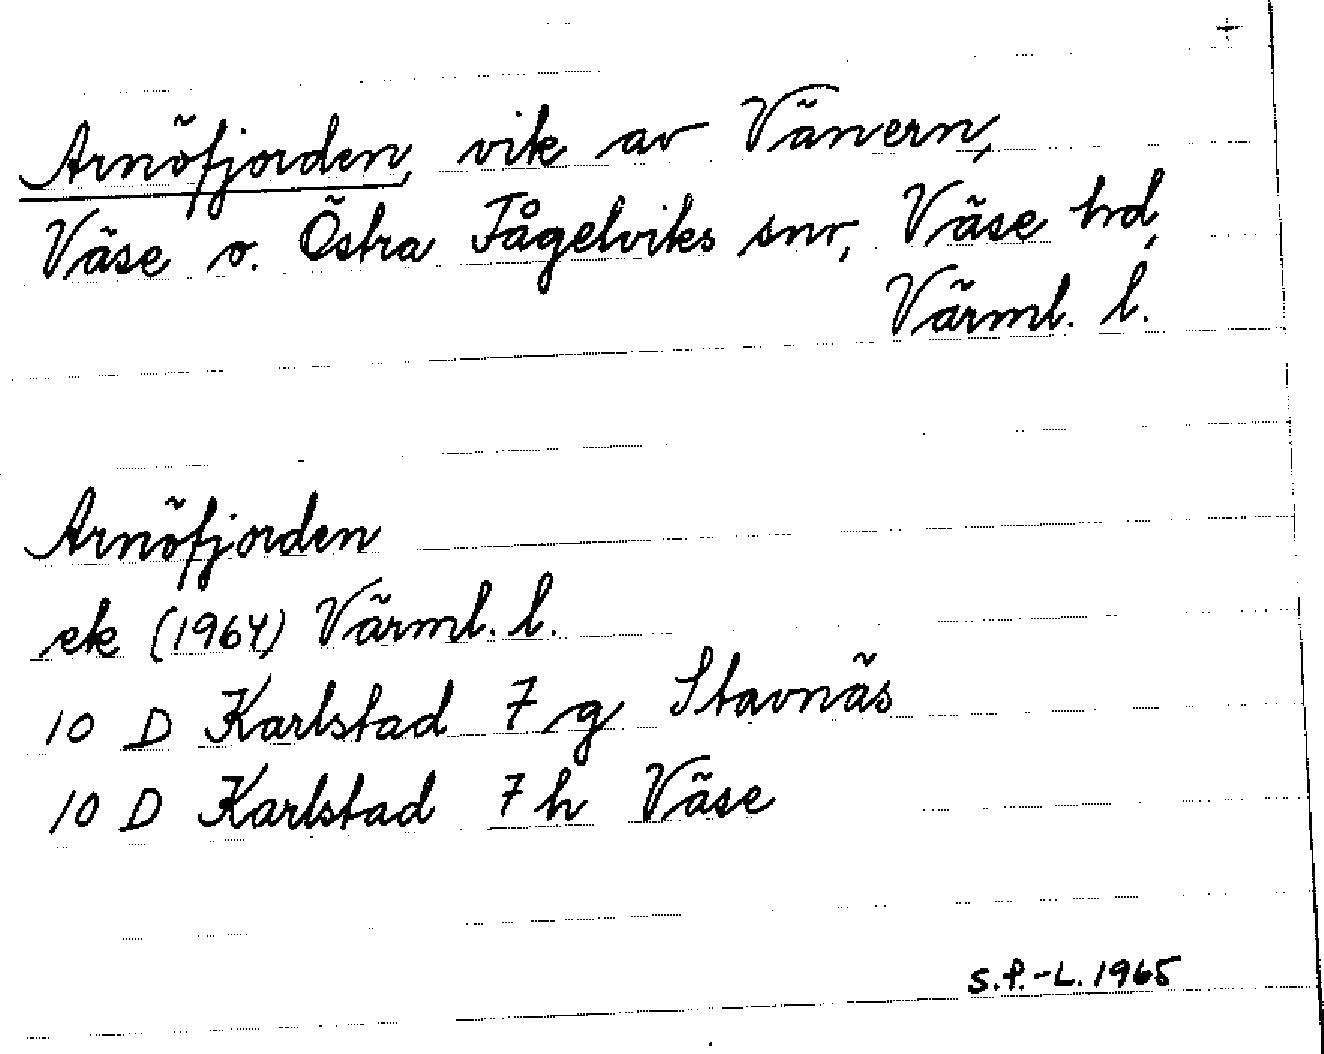 Arnöfjorden, vik av Vänern,
Väse o. Östra Fågelviks snr, Väse hrd,
Värml. l.
Arnöfjorden
ek (1964) Värml. l.
10 D Karlstad 7 g Stavnäs
10 D Karlstad 7 h Väse
S.P.-L. 1965